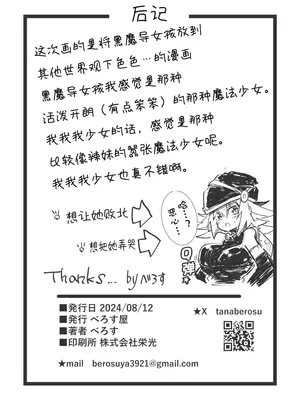 后记
这次画的是将黑魔导女孩放到
其他世界观下色色…的漫画
黑魔导女孩我感觉是那种
活泼开朗（有点笨笨）的那种魔法少女。
我我我少女的话，感觉是那种
比较像辣妹的嚣张魔法少女呢。
我我我少女也真不错啊。
想让她败北
想把她弄哭
哈…?
恶心…
Thanks... byべろす
■発行日 2024/08/12
■発行 べろす屋
■著者 べろす
■印刷所 株式会社栄光
★X tanaberosu
★mail berosuya3921@gmail.com